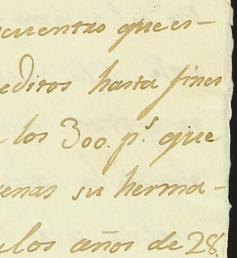 cuentas que es-
editos hasta fines
los 300. p.s que
enas su herma-
los años de 28.